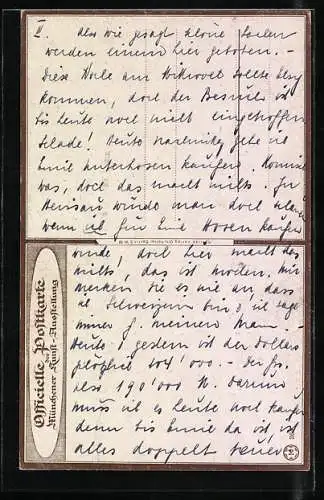 II. Also wie gesagt kleine
werden einem hier geboten. -
Diese Woche am Mittwoch sollte
kommen, doch der Besuch ist
bis heute noch nicht eingetroffen
Schade! Heute nachmittag gehe ich
Emil Unterhosen kaufen. Komisch
was, doch das macht nichts. In
würde man doch
wenn ich für Emil Hosen kaufen
würde, doch hier macht das
nichts, das ist modern. Wir
merken die es wie an dass
ich Schweizerin bin, ich sage
immer f. meinen Mann. -
Heute & gestern ist der Dollars
plötzlich 104'000.- Der Fr.
also 190'000 M. Darum
muss ich es heute noch kaufen
denn bis Emil da ist, ist
alles doppelt teuer
Officielle Postkarte
der
Münchener Kunst-Ausstellung